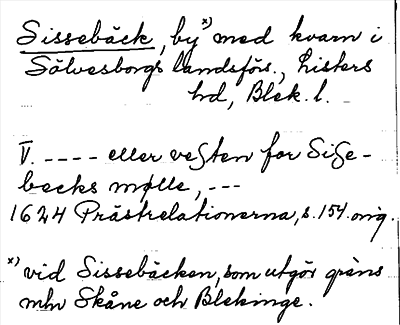 Sissebäck, by x) med kvarn i
Sölvesborgs landsförs., Listers
hd, Blek. l.
V. ---- eller vesten for Sise-
becks mølle, ---
1624 Prästrelationerna, s. 154 orig.
x) vid Sissebäcken, som utgör gräns
mln Skåne och Blekinge.